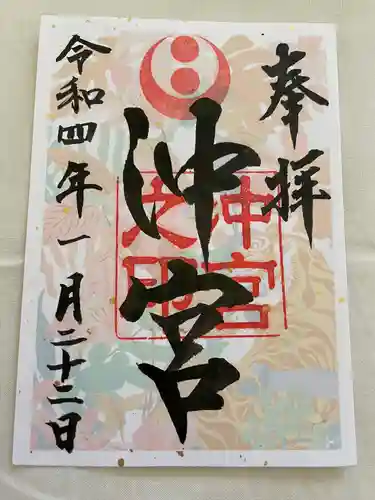 奉拝
沖宮
沖宮
之印
令和四年一月二十二日